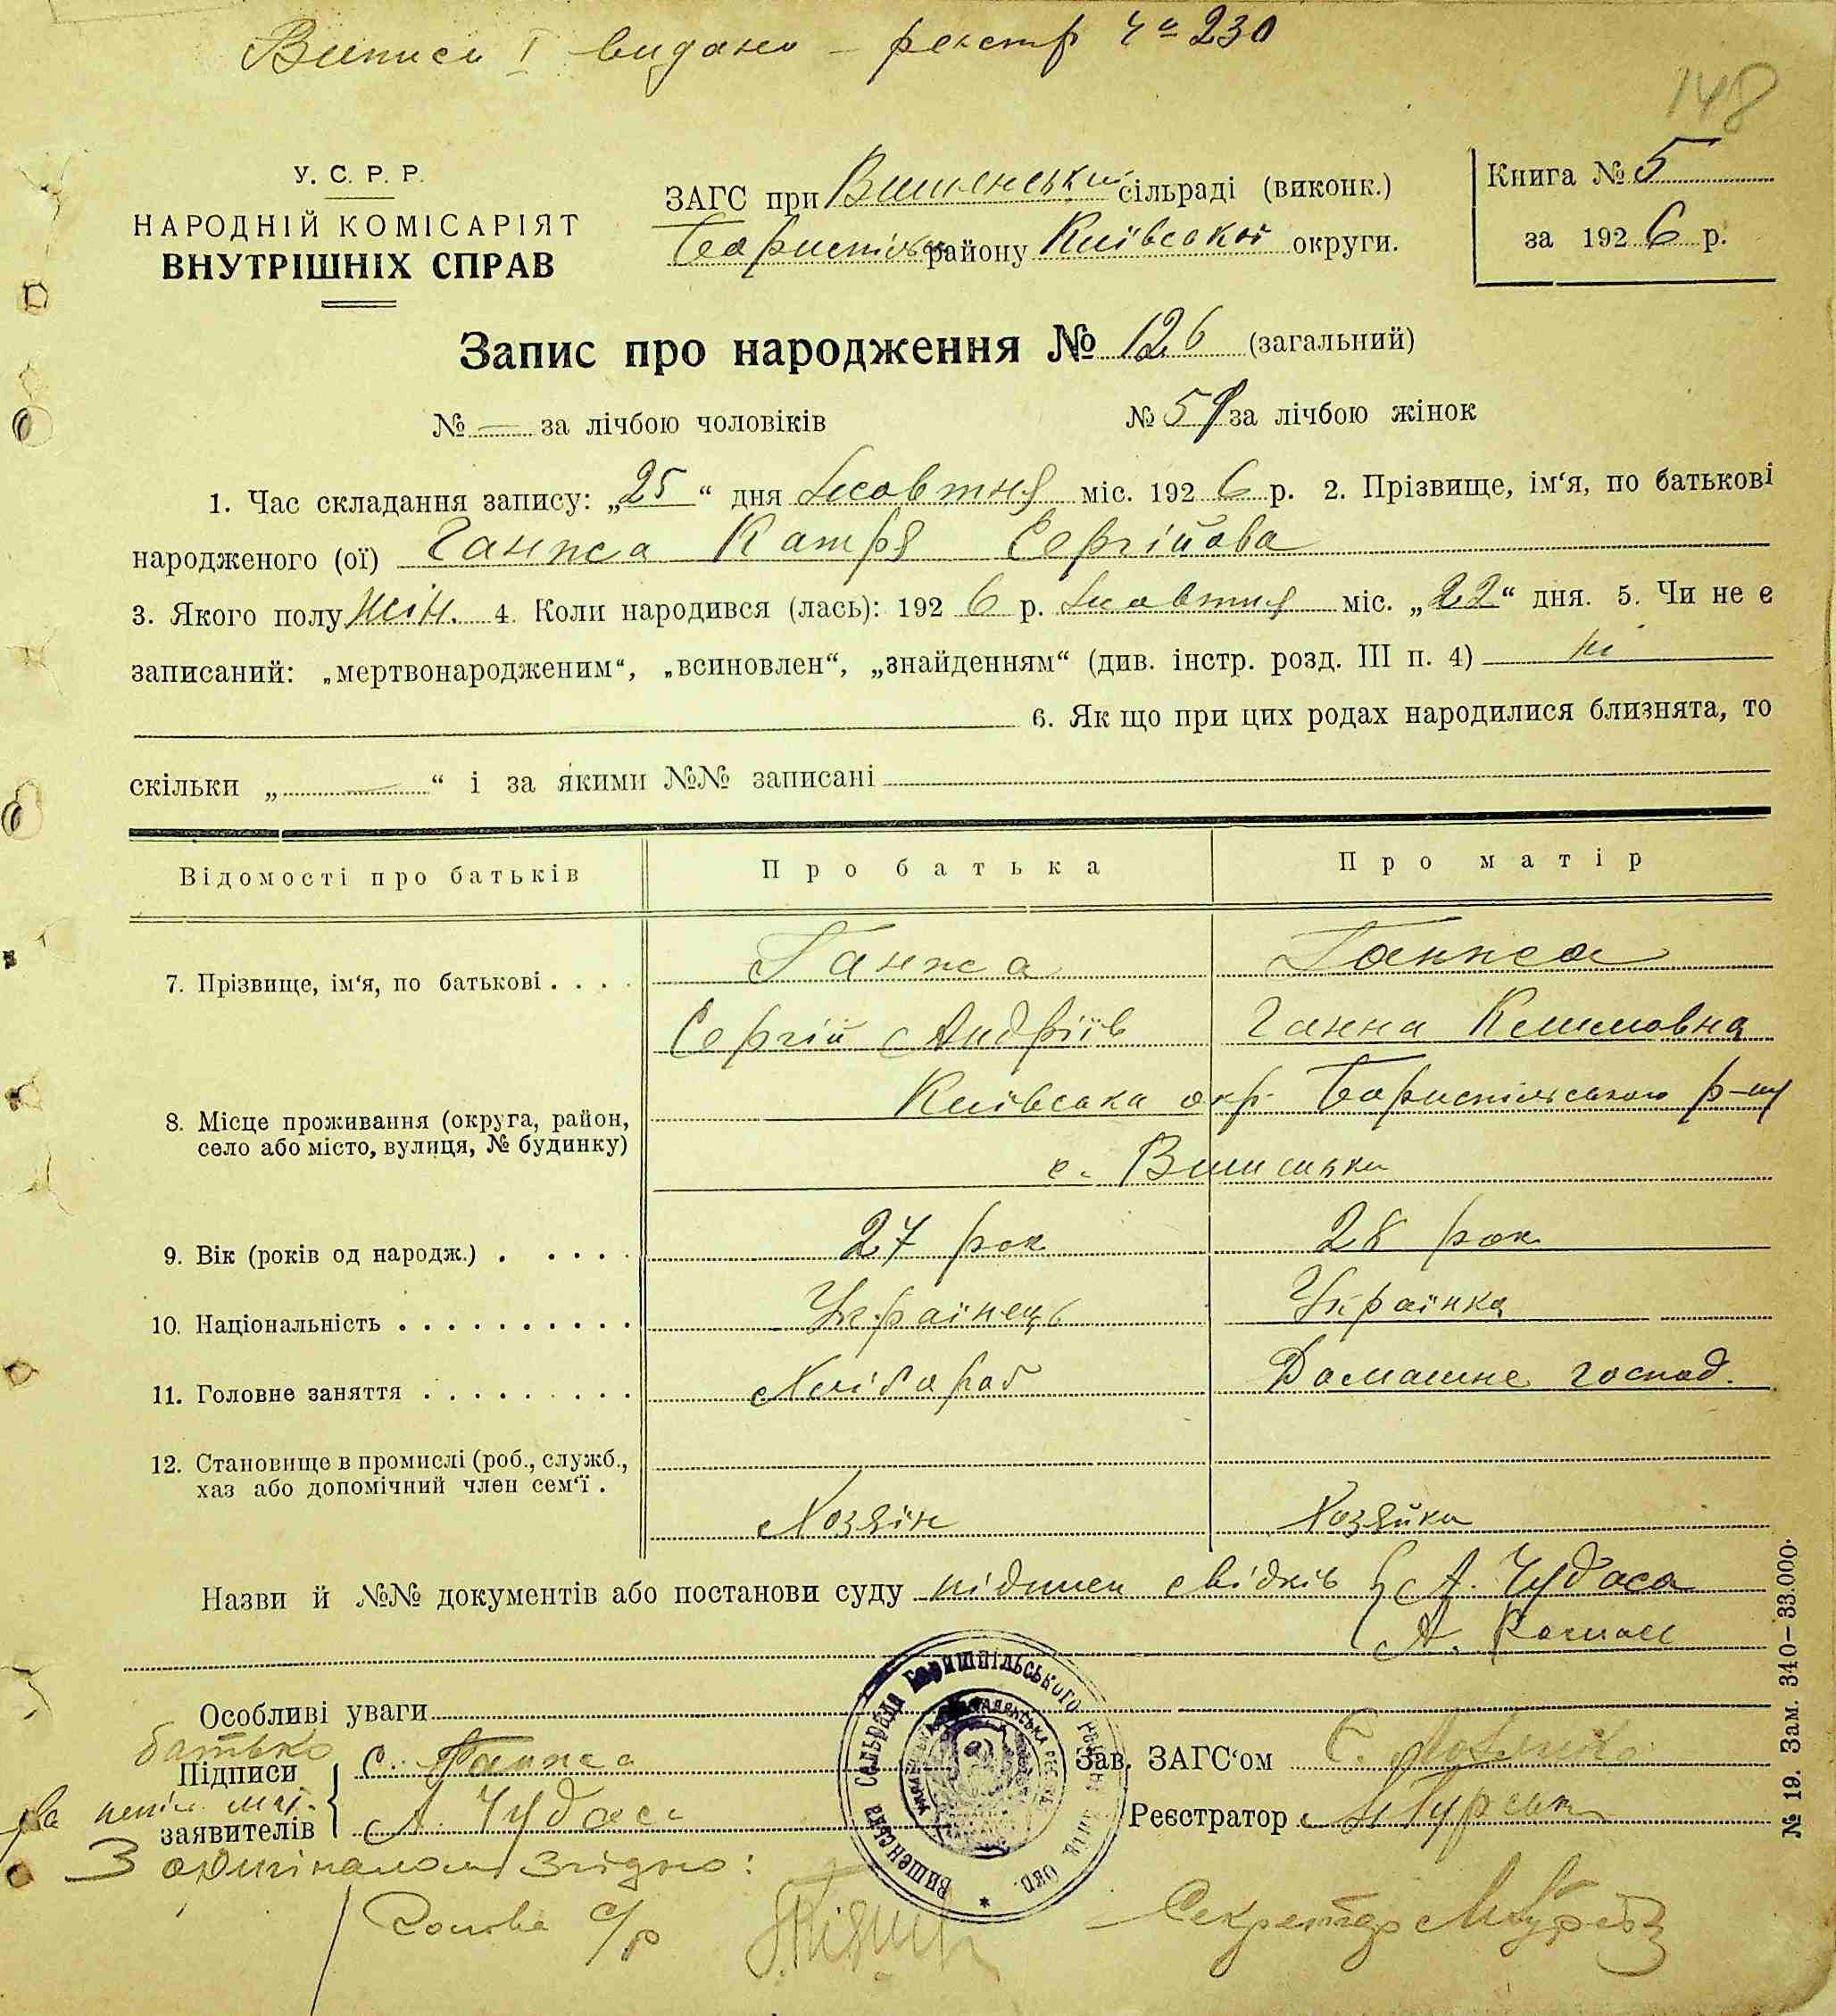 Виписи I видано – реєстр ч⁰ 230
148
У. С. Р. Р.
НАРОДНІЙ КОМІСАРІЯТ
ВНУТРІШНІХ СПРАВ
ЗАГС при Вишенськи сільраді (виконк.)
району Київської округи.
Книга № 5
за 1926 р.
Запис про народження № 126 (загальний)
№ — за лічбою чоловіків
№ 59 за лічбою жінок
1. Час складання запису: „25“ дня Жовтня міс. 1926 р. 2. Прізвище, ім‘я, по батькові
народженого (ої) Ганжа Катря Сергійова
3. Якого полу жін. 4. Коли народився (лась): 1926 р. Жовтня міс. „22“ дня. 5. Чи не є
записаний: „мертвонародженим“, „всиновлен“, „знайденням“ (див. інстр. розд. III п. 4) ні
6. Як що при цих родах народилися близнята, то
скільки „ — “ і за якими №№ записані
Відомості про батьків
Про батька
Про матір
7. Прізвище, ім‘я, по батькові
Ганжа
Ганжа
Сергій Андріїв
Ганна Климовна
8. Місце проживання (округа, район,
село або місто, вулиця, № будинку)
Київська окр. Бориспільського р-ну
с. Вишеньки
9. Вік (років од народж.)
27 рок
28 рок
10. Національність
Українець
Українка
11. Головне заняття
Хлібороб
Домашне господ.
12. Становище в промислі (роб., служб.,
хаз або допомічний член сем‘ї.
Хозяін
Хозяйка
Назви й №№ документів або постанови суду підписи свідків А. Чудаса
А.
Особливі уваги
батько
Підписи
заявителів
С. Ганжа
А. Чудас
Зав. ЗАГС‘ом
Реєстратор
Вишенська Сельрада Боришпільського
З оригіналом згідно:
Голова с/р
Секретар
№ 19. Зам. 340–33.000.